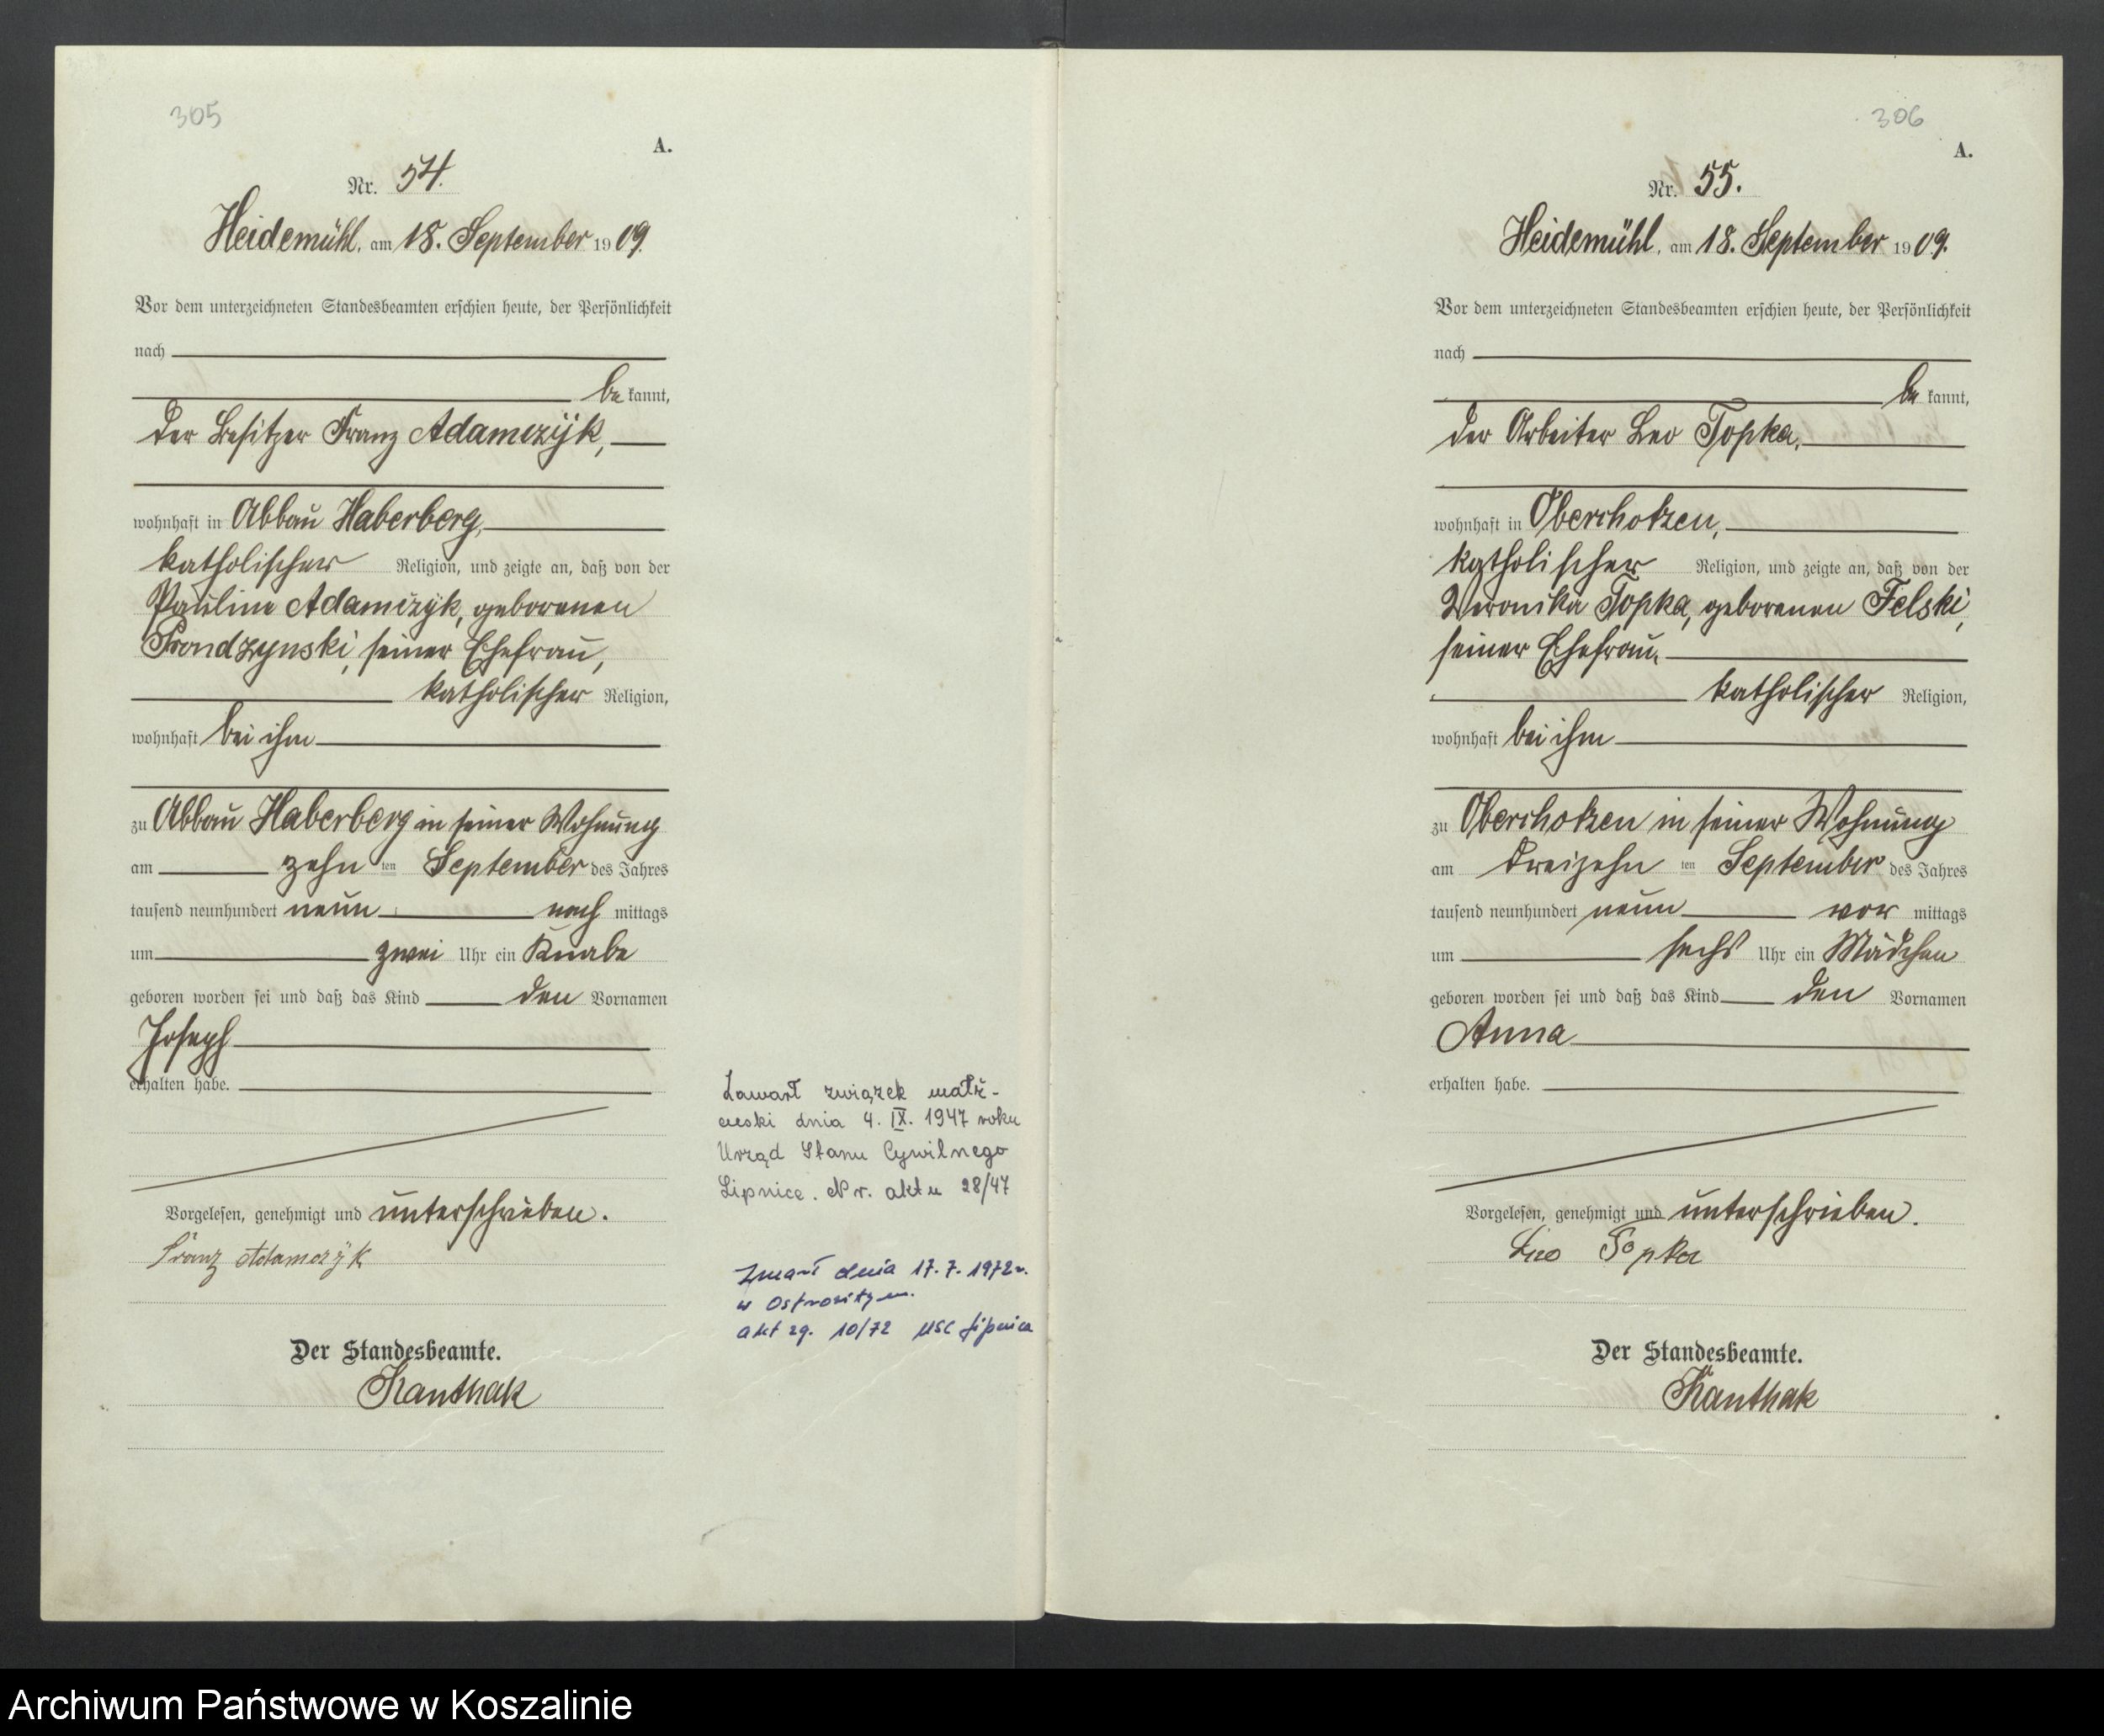 305
A.
Nr. 54.
Heidemühl, am 18. September 1909.
Vor dem unterzeichneten Standesbeamten erschien heute, der Persönlichkeit
nach
bekannt,
der Besitzer Franz Adamczÿk,
wohnhaft in Abbau Haberberg,
katholischer Religion, und zeigte an, daß von der
Pauline Adamczÿk, geborenen
Prondzynski, seiner Ehefrau,
katholischer Religion,
wohnhaft bei ihm
zu Abbau Haberberg in seiner Wohnung
am zehn ten September des Jahres
tausend neunhundert neun nach mittags
um zwei Uhr ein Knabe
geboren worden sei und daß das Kind den Vornamen
Joseph
erhalten habe.
Vorgelesen, genehmigt und unterschrieben.
Franz Adamczÿk
Der Standesbeamte.
Kanthak
Zawarł związek małż-
eński dnia 4. IX. 1947 roku
Urząd Stanu Cywilnego
Lipnice. Nr. aktu 28/47
Zmarł dnia 17.7.1972r.
w Ostrowitym.
akt zg. 10/72 USC Lipnica
306
A.
Nr. 55.
Heidemühl, am 18. September 1909.
Vor dem unterzeichneten Standesbeamten erschien heute, der Persönlichkeit
nach
bekannt,
der Arbeiter Leo Topka,
wohnhaft in Oberchotzen,
katholischer Religion, und zeigte an, daß von der
Veronika Topka, geborenen Felski,
seiner Ehefrau,
katholischer Religion,
wohnhaft bei ihm
zu Oberchotzen in seiner Wohnung
am dreizehn ten September des Jahres
tausend neunhundert neun vor mittags
um sechs Uhr ein Mädchen
geboren worden sei und daß das Kind den Vornamen
Anna
erhalten habe.
Vorgelesen, genehmigt und unterschrieben.
Leo Topka
Der Standesbeamte.
Kanthak
Archiwum Państwowe w Koszalinie